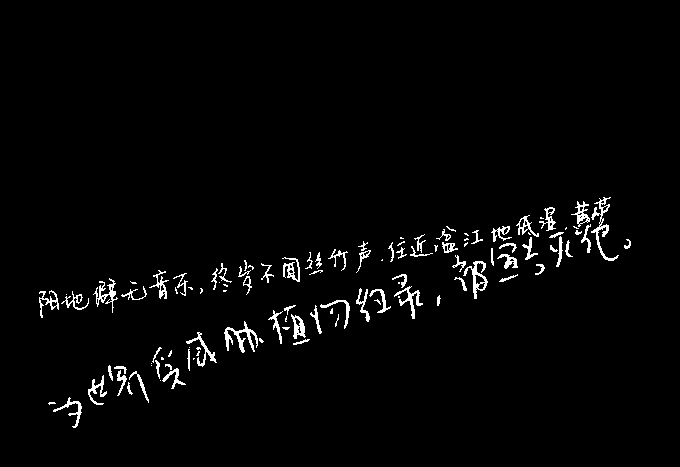 阳地僻无音乐，终岁不闻丝竹声.住近湓江地低湿.黄芦
为世界受威胁植物红录，被宣告灭绝。